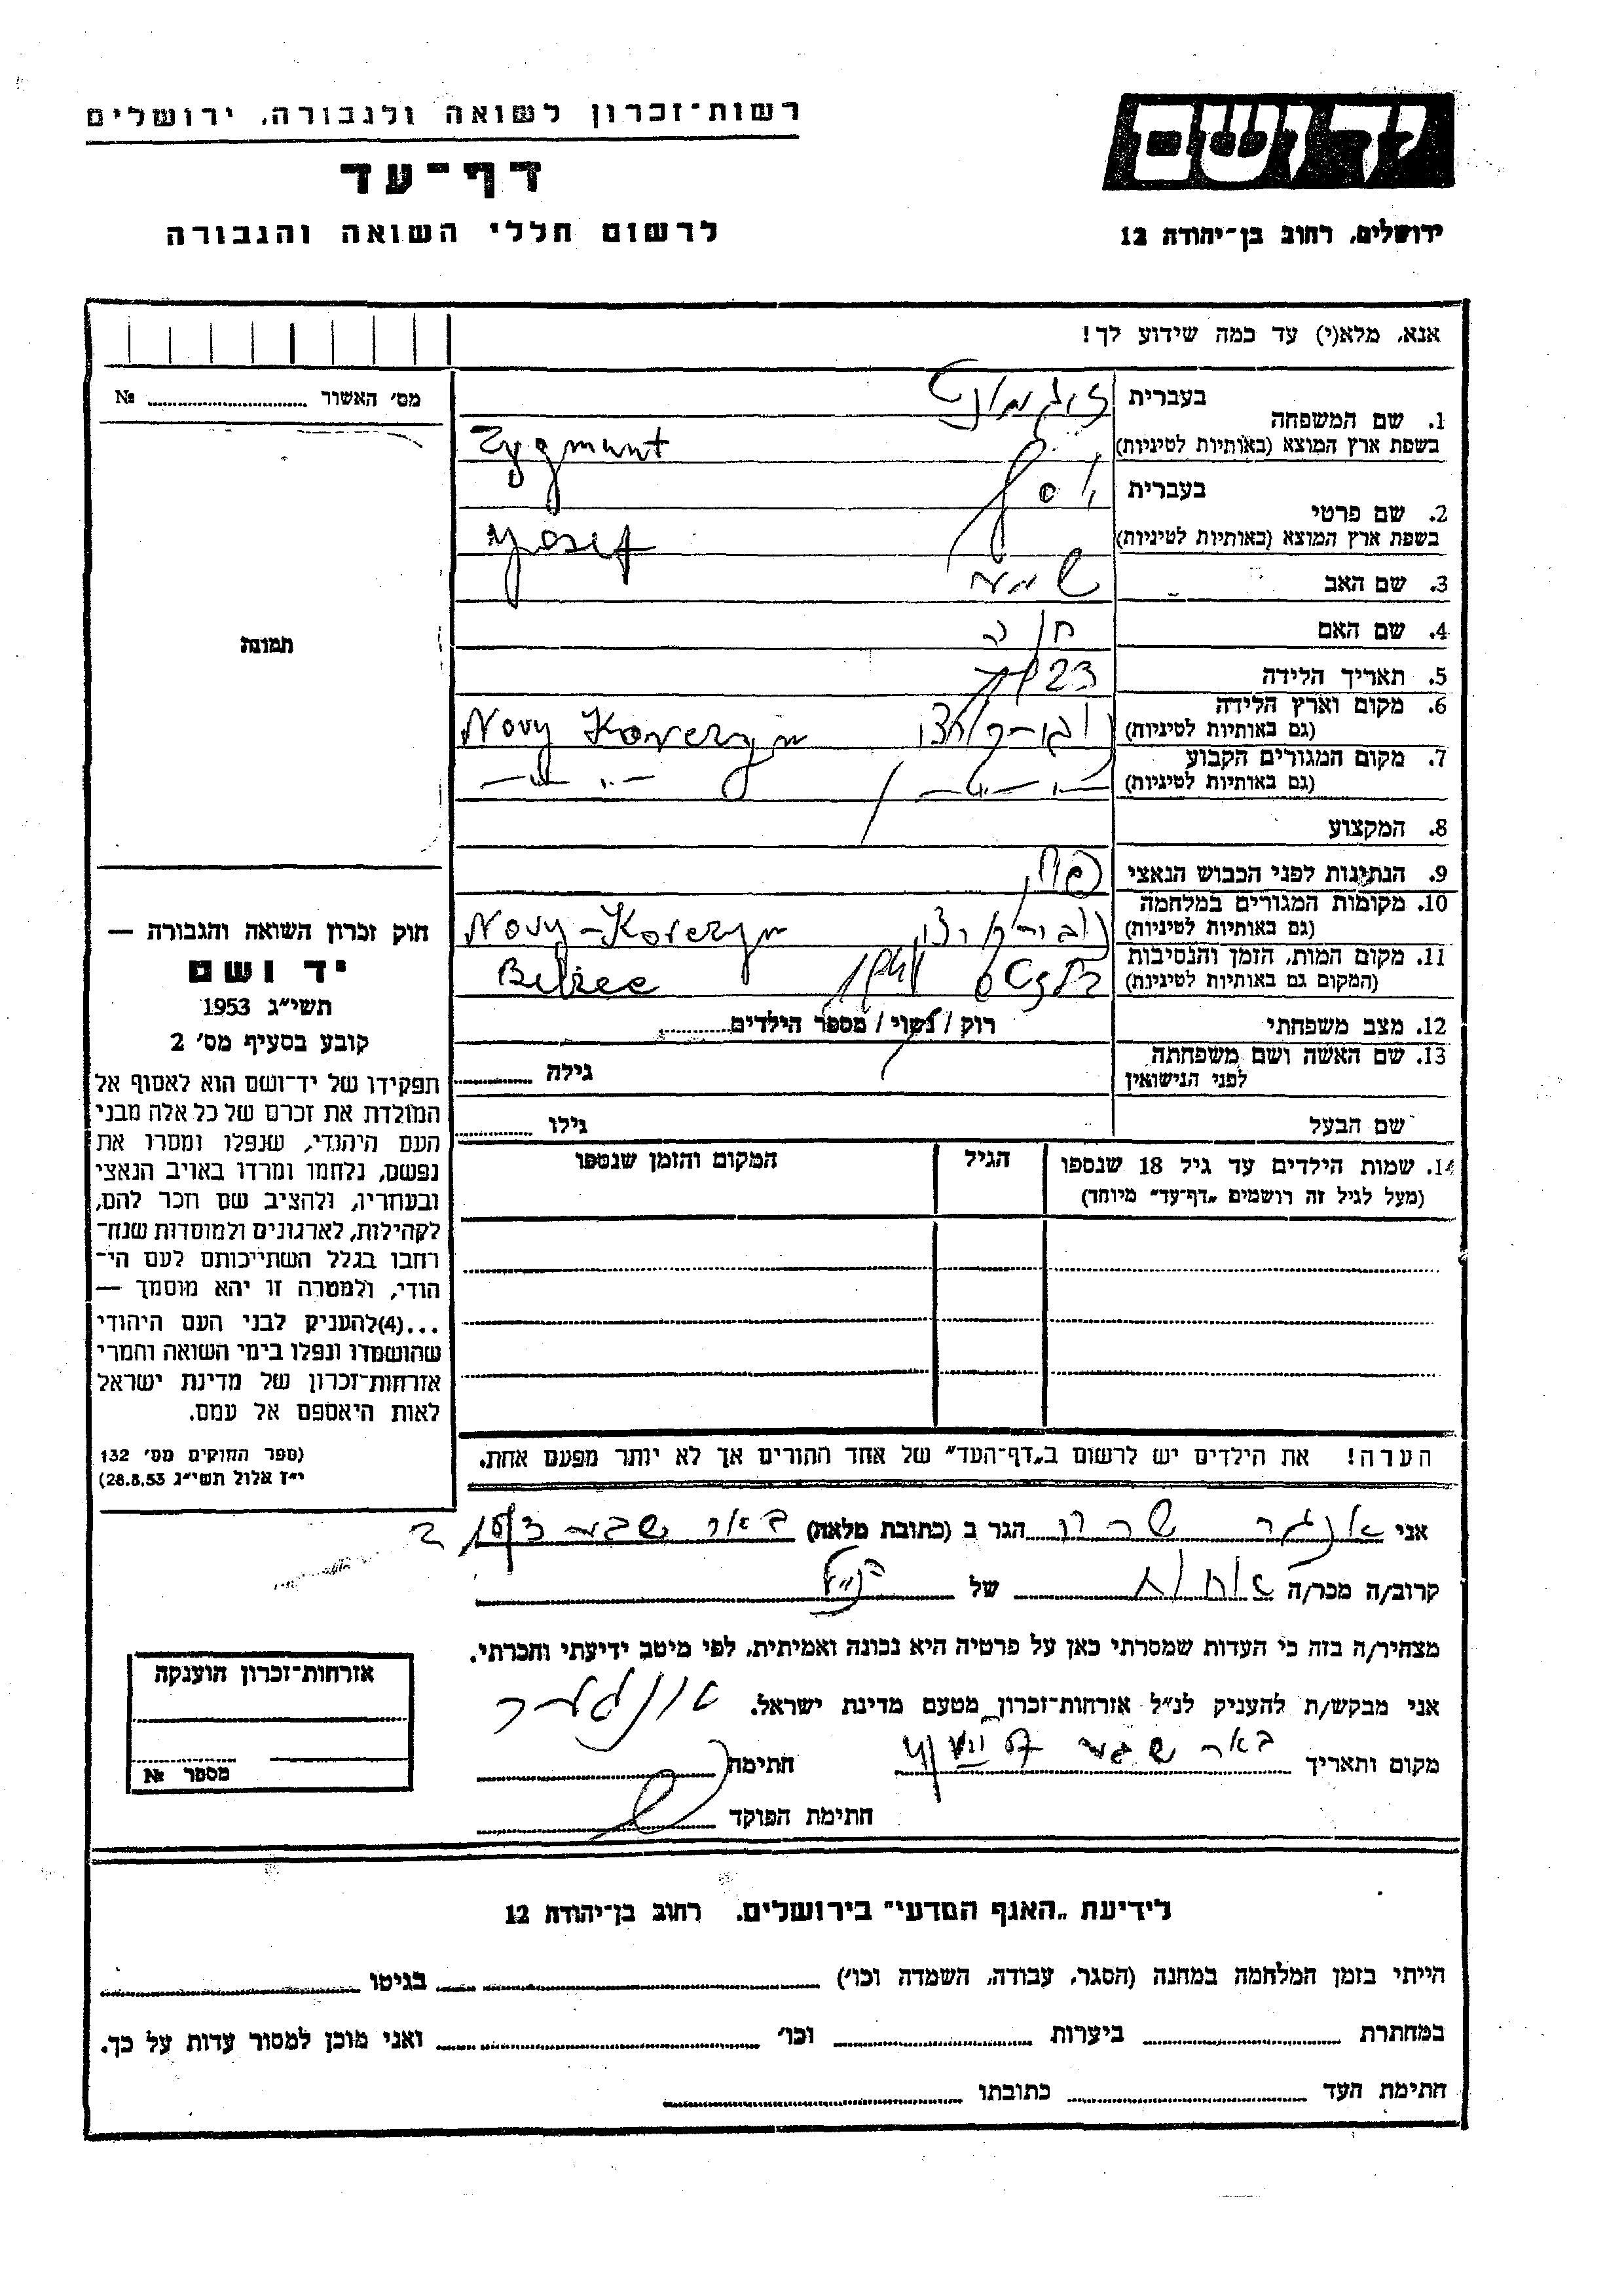 רשות־זכרון לשואה ולגבורה, ירושלים
יד ושם
דף־עד
לרשום חללי השואה והגבורה
ירושלים, רחוב בן־יהודה 12
אנא, מלא(י) עד כמה שידוע לך!
מס׳ האשור № ........
1. שם המשפחה
בעברית זיגמונט
בשפת ארץ המוצא (באותיות לטיניות) Zygmunt
2. שם פרטי
בעברית יוסף
בשפת ארץ המוצא (באותיות לטיניות) Yosef
3. שם האב
4. שם האם חוה
5. תאריך הלידה
6. מקום וארץ הלידה
(גם באותיות לטיניות) Novy Korczyn
7. מקום המגורים הקבוע
(גם באותיות לטיניות) — ״ —
8. המקצוע
9. הנתינות לפני הכבוש הנאצי פולין
10. מקומות המגורים במלחמה
(גם באותיות לטיניות) Novy-Korczyn
11. מקום המות, הזמן והנסיבות
(המקום גם באותיות לטיניות) Belzec
12. מצב משפחתי רוק / נשוי / מספר הילדים ........
13. שם האשה ושם משפחתה
לפני הנישואין גילה ........
שם הבעל גילו ........
14. שמות הילדים עד גיל 18 שנספו הגיל המקום והזמן שנספו
(מעל לגיל זה רושמים „דף־עד״ מיוחד)
הערה! את הילדים יש לרשום ב„דף־העד״ של אחד ההורים אך לא יותר מפעם אחת.
תמונה
חוק זכרון השואה והגבורה —
יד ושם
תשי״ג 1953
קובע בסעיף מס׳ 2
תפקידו של יד־ושם הוא לאסוף אל
המולדת את זכרם של כל אלה מבני
העם היהודי, שנפלו ומסרו את
נפשם, נלחמו ומרדו באויב הנאצי
ובעוזריו, ולהציב שם וזכר להם,
לקהילות, לארגונים ולמוסדות שנח־
רבו בגלל השתייכותם לעם הי־
הודי, ולמטרה זו יהא מוסמך —
...(4)להעניק לבני העם היהודי
שהושמדו ונפלו בימי השואה והמרי
אזרחות־זכרון של מדינת ישראל
לאות היאספם אל עמם.
(ספר החוקים מס׳ 132
י״ז אלול תשי״ג 28.8.53)
אני הגר ב (כתובת מלאה) באר שבע
קרוב/ה מכר/ה אחות של הנ״ל
מצהיר/ה בזה כי העדות שמסרתי כאן על פרטיה היא נכונה ואמיתית, לפי מיטב ידיעתי והכרתי.
אני מבקש/ת להעניק לנ״ל אזרחות־זכרון מטעם מדינת ישראל.
מקום ותאריך באר שבע חתימה
חתימת הפוקד
אזרחות־זכרון הוענקה
מספר №
לידיעת „האגף המדעי״ בירושלים, רחוב בן־יהודה 12
הייתי בזמן המלחמה במחנה (הסגר, עבודה, השמדה וכו׳) ........ בגיטו ........
במחתרת ........ ביערות ........ וכו׳ ........ ואני מוכן למסור עדות על כך.
חתימת העד ........ כתובתו ........